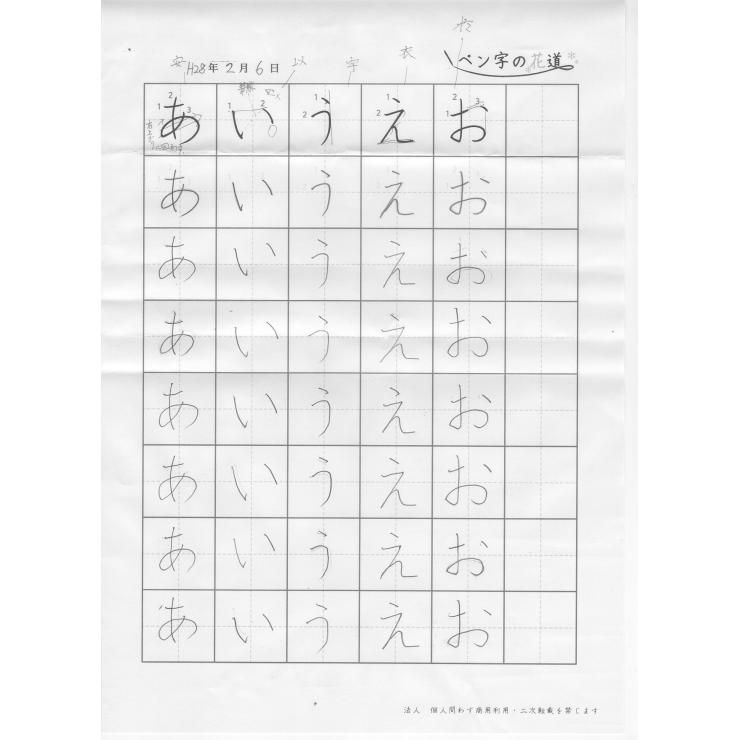 於
安 以 宇 衣
H28年2月6日 ペン字の花道
1 2 3 あ 1 2 い 1 2 う 1 2 え 1 2 3 お
あ い う え お
あ い う え お
あ い う え お
あ い う え お
あ い う え お
あ い う え お
あ い う え お
法人 個人問わず商用利用・二次転載を禁じます